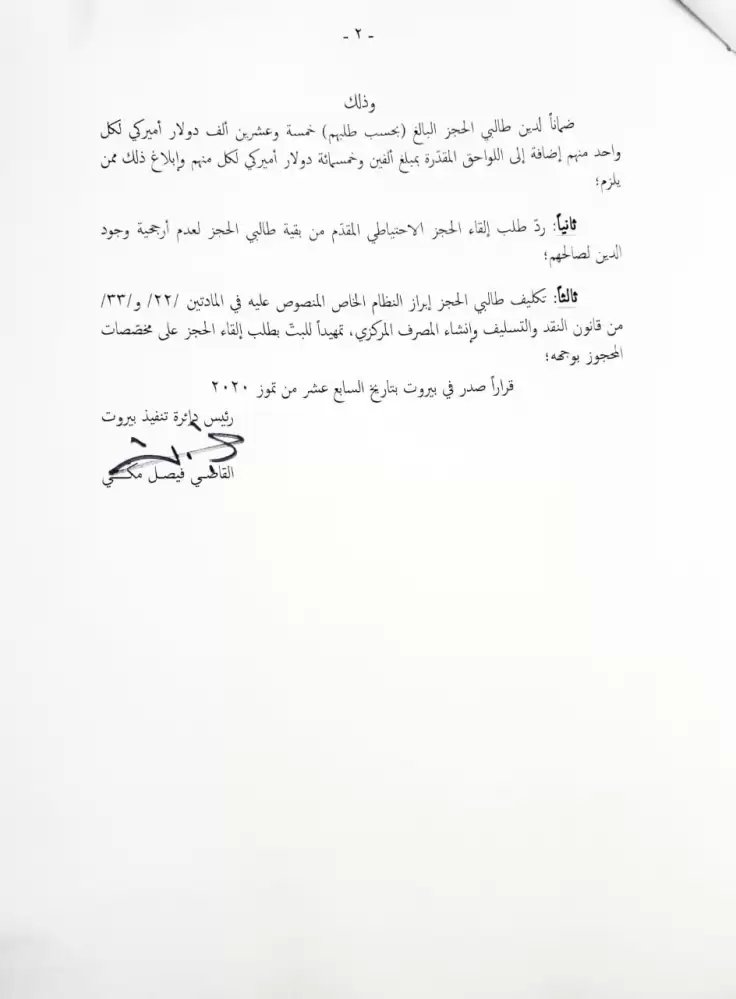 - ٢ -
وذلك
ضماناً لدين طالبي الحجز البالغ (بحسب طلبهم) خمسة وعشرين ألف دولار أميركي لكل
واحد منهم إضافة إلى اللواحق المقدّرة بمبلغ ألفين وخمسمائة دولار أميركي لكل منهم وإبلاغ ذلك ممن
يلزم؛
ثانياً: ردّ طلب إلقاء الحجز الاحتياطي المقدّم من بقية طالبي الحجز لعدم أرجحية وجود
الدين لصالحهم؛
ثالثاً: تكليف طالبي الحجز إبراز النظام الخاص المنصوص عليه في المادتين /٢٢/ و/٣٣/
من قانون النقد والتسليف وإنشاء المصرف المركزي، تمهيداً للبتّ بطلب إلقاء الحجز على مخصّصات
المحجوز بوجهه؛
قراراً صدر في بيروت بتاريخ السابع عشر من تموز ٢٠٢٠
رئيس دائرة تنفيذ بيروت
القاضي فيصل مكي